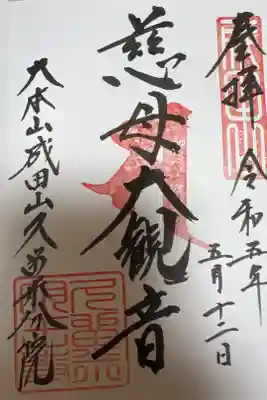 奉拝
令和五年
五月十二日
慈母大観音
大本山成田山久留米分院